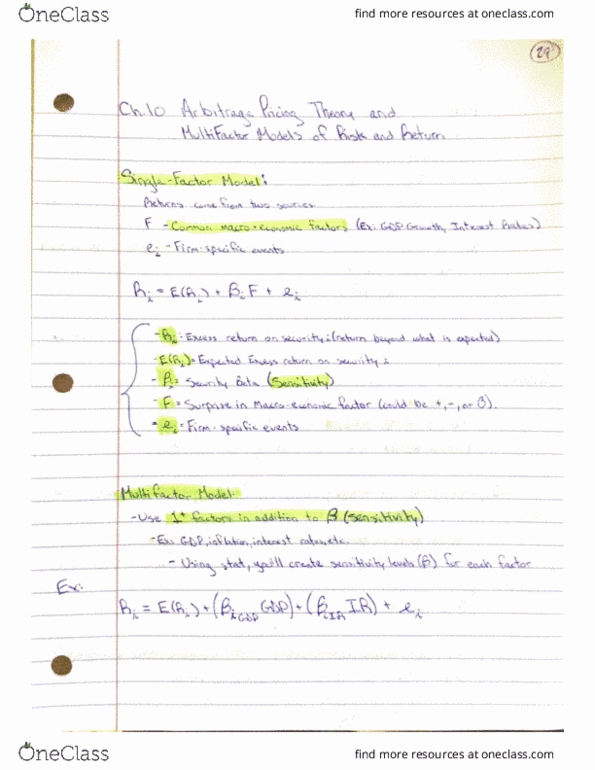 OneClass
find more resources at oneclass.com
29
Ch.10 Arbitrage Pricing Theory and
MultiFactor Models of Risk and Return
Single-Factor Model:
Returns come from two sources
F - Common macro-economic factors (Ex: GDP Growth, Interest Rates)
eᵢ - Firm-specific events
Rᵢ = E(Rᵢ) + βᵢF + eᵢ
- Rᵢ = Excess return on security i (return beyond what is expected)
- E(Rᵢ) = Expected Excess return on security i
- βᵢ = Security Beta (Sensitivity)
- F = Surprise in Macro-economic factor (could be +, -, or 0).
- eᵢ = Firm-specific events
Multifactor Model:
- Use 1+ factors in addition to β (sensitivity)
- Ex: GDP, inflation, interest rates, etc.
- Using stat, you'll create sensitivity levels (β) for each factor
Ex:
Rᵢ = E(Rᵢ) + (βᵢGDP GDP) + (βᵢIR IR) + eᵢ
OneClass
find more resources at oneclass.com